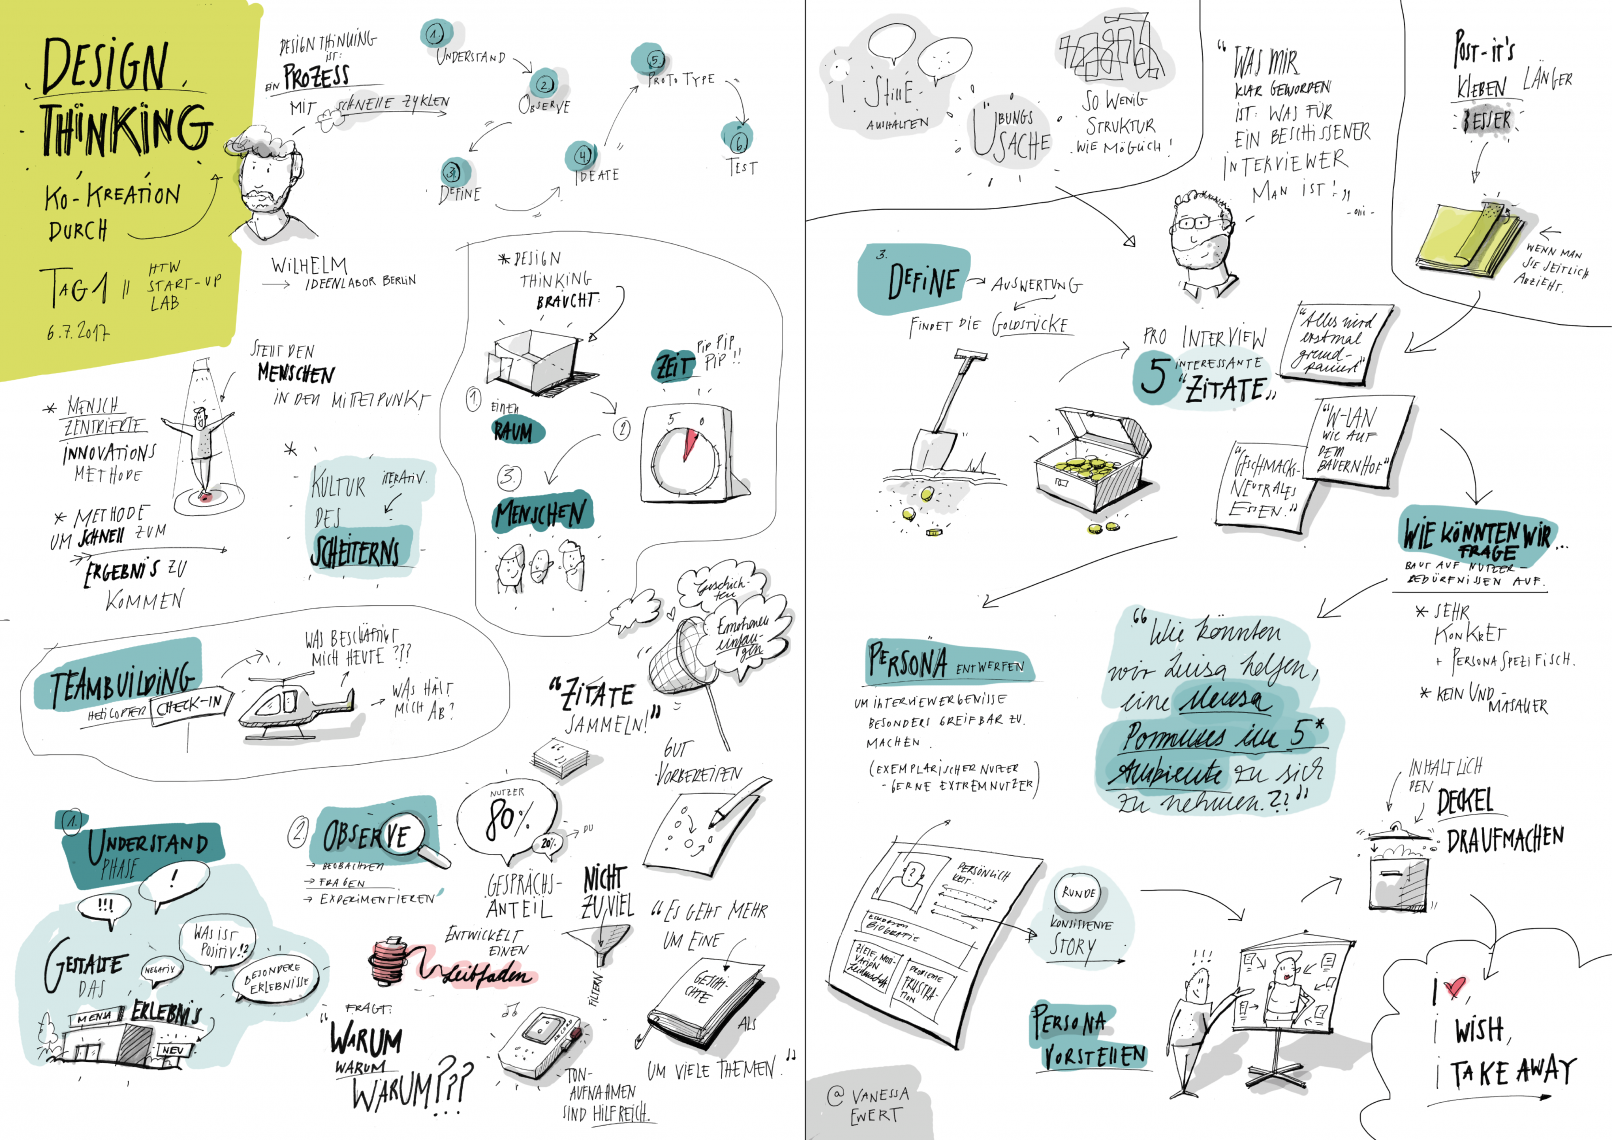 DESIGN
THINKING
KO-KREATION
DURCH
TAG 1 //
HTW
START-UP
LAB
6.7.2017
DESIGN THINKING
IST:
EIN PROZESS
MIT SCHNELLE ZYKLEN
WILHELM
→ IDEENLABOR BERLIN
1. UNDERSTAND
2. OBSERVE
3. DEFINE
4. IDEATE
5. PROTOTYPE
6. TEST
* MENSCH
ZENTRIERTE
INNOVATIONS
METHODE
STEHT DEN
MENSCHEN
IN DEN MITTELPUNKT
* METHODE
UM SCHNELL ZUM
ERGEBNIS ZU
KOMMEN
* KULTUR
DES
SCHEITERNS
ITERATIV.
* DESIGN
THINKING
BRAUCHT:
1 EINEN
RAUM
2 ZEIT
PIP PIP
PIP!!
5 0
3. MENSCHEN
TEAMBUILDING
HELICOPTER CHECK-IN
WAS BESCHÄFTIGT
MICH HEUTE???
WAS HÄLT
MICH AB?
1. UNDERSTAND
PHASE
!!!
!
GESTALTE
DAS
ERLEBNIS
WAS IST
POSITIV!?
NEGATIV
BESONDERE
ERLEBNISSE
MENSA
NEU
2 OBSERVE
→ BEOBACHTEN
→ FRAGEN
→ EXPERIMENTIEREN
"ZITATE
SAMMELN!"
GESCHICHTEN
EMOTIONEN
EINFANGEN
NUTZER
80%
20% → DU
GESPRÄCHS-
ANTEIL
NICHT
ZU VIEL
FILTERN
GUT
VORBEREITEN
ENTWICKELT
EINEN
Leitfaden
FRAGT:
"WARUM
WARUM
WARUM???
TON-
AUFNAHMEN
SIND HILFREICH.
"ES GEHT MEHR
UM EINE
GESCHI-
CHTE
ALS
UM VIELE THEMEN."
STILLE
AUSHALTEN
ÜBUNGS
SACHE
SO WENIG
STRUKTUR
WIE MÖGLICH!
"WAS MIR
KLAR GEWORDEN
IST: WAS FÜR
EIN BESCHISSENER
INTERVIEWER
MAN IST!"
POST-IT'S
KLEBEN LÄNGER
BESSER
WENN MAN
SIE SEITLICH
ABZIEHT.
3. DEFINE → AUSWERTUNG
FINDET DIE GOLDSTÜCKE
PRO INTERVIEW
5 INTERESSANTE
"ZITATE"
"Alles wird
erstmal
grund-
paniert"
"W-LAN
WIE AUF
DEM
BAUERNHOF"
"GESCHMACKS-
NEUTRALES
ESSEN."
WIE KÖNNTEN WIR...
FRAGE
BAUT AUF NUTZER-
BEDÜRFNISSEN AUF.
* SEHR
KONKRET
+ PERSONASPEZIFISCH.
* KEIN UND
"Wie könnten
wir Luisa helfen,
eine Mensa
Pommes im 5*
Ambiente zu sich
zu nehmen??"
PERSONA ENTWERFEN
UM INTERVIEWERGEBNISSE
BESONDERS GREIFBAR ZU
MACHEN.
(EXEMPLARISCHER NUTZER
- GERNE EXTREMNUTZER)
?
PERSÖNLICH
KEIT.
BIOGRAFIE
ZIELE, MOTI-
VATION
PROBLEME
FRUSTRA-
TION
RUNDE
KONSISTENTE
STORY
PERSONA
VORSTELLEN
!!
INHALTLICH
DEN
DECKEL
DRAUFMACHEN
I ♥,
I WISH,
I TAKE AWAY
@ VANESSA
EWERT